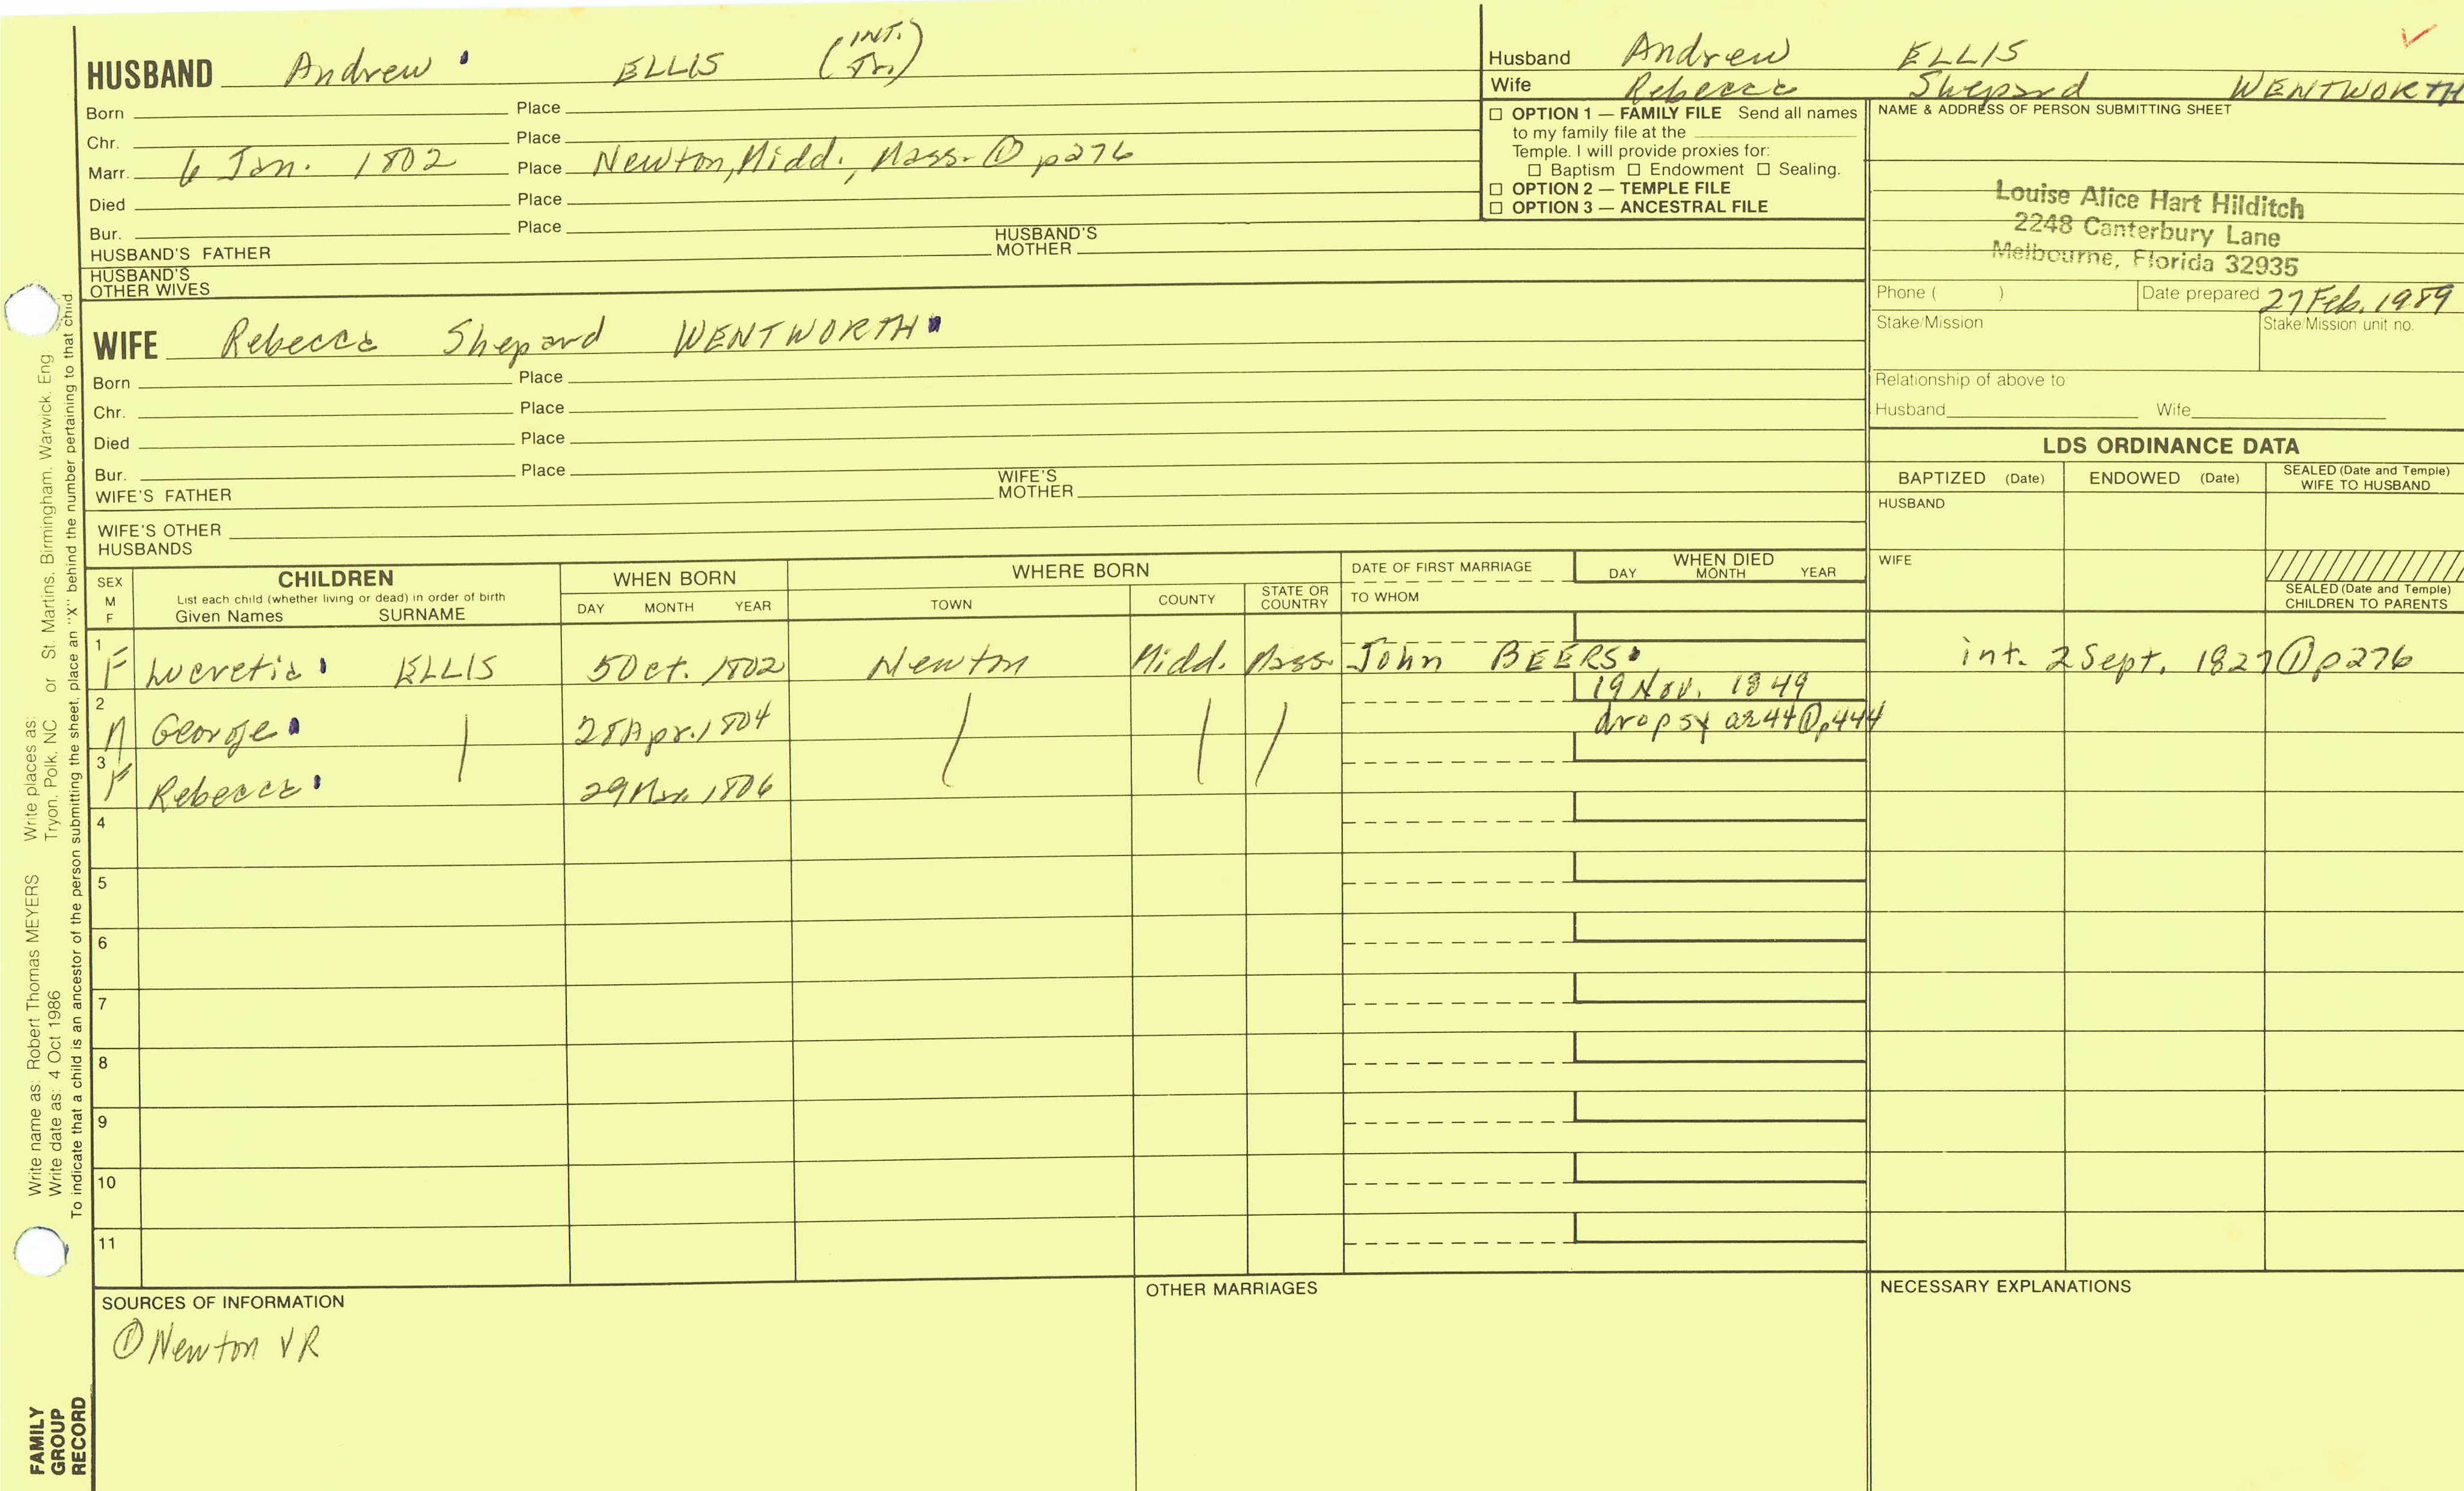 HUSBAND Andrew ELLIS (INT. Jr.)
Born Place
Chr. Place
Marr. 6 Jan. 1802 Place Newton, Midd., Mass. ① p276
Died Place
Bur. Place
HUSBAND'S FATHER HUSBAND'S MOTHER
HUSBAND'S OTHER WIVES
WIFE Rebecca Shepard WENTWORTH
Born Place
Chr. Place
Died Place
Bur. Place
WIFE'S FATHER WIFE'S MOTHER
WIFE'S OTHER HUSBANDS
Husband Andrew ELLIS
Wife Rebecca Shepard WENTWORTH
☐ OPTION 1 — FAMILY FILE Send all names
to my family file at the
Temple. I will provide proxies for:
☐ Baptism ☐ Endowment ☐ Sealing.
☐ OPTION 2 — TEMPLE FILE
☐ OPTION 3 — ANCESTRAL FILE
NAME & ADDRESS OF PERSON SUBMITTING SHEET
Louise Alice Hart Hilditch
2248 Canterbury Lane
Melbourne, Florida 32935
Phone ( ) Date prepared 27 Feb. 1989
Stake/Mission Stake/Mission unit no.
Relationship of above to:
Husband Wife
LDS ORDINANCE DATA
BAPTIZED (Date) ENDOWED (Date) SEALED (Date and Temple) WIFE TO HUSBAND
HUSBAND
WIFE
SEALED (Date and Temple) CHILDREN TO PARENTS
SEX M F
CHILDREN
List each child (whether living or dead) in order of birth
Given Names SURNAME
WHEN BORN
DAY MONTH YEAR
WHERE BORN
TOWN COUNTY STATE OR COUNTRY
DATE OF FIRST MARRIAGE
TO WHOM
WHEN DIED
DAY MONTH YEAR
1 F Lucretia ELLIS 5 Oct. 1802 Newton Midd. Mass. John BEERS int. 2 Sept. 1827 ① p276
2 M George 28 Apr. 1804 19 Nov. 1849
dropsy ae 44 ① p444
3 F Rebecca 29 Mar. 1806
4
5
6
7
8
9
10
11
SOURCES OF INFORMATION
① Newton VR
OTHER MARRIAGES
NECESSARY EXPLANATIONS
Write name as: Robert Thomas MEYERS Write places as: St. Martins, Birmingham, Warwick, Eng
Write date as: 4 Oct 1986 Tryon, Polk, NC or
To indicate that a child is an ancestor of the person submitting the sheet, place an "X" behind the number pertaining to that child
FAMILY
GROUP
RECORD